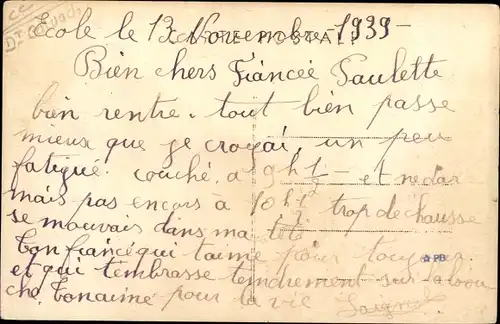 Ecole le 13 Novembre - 1939 -
CARTE POSTALE
Bien chers Fiancée Paulette
bien rentre. tout bien passe
mieux que je croyai, un peu
fatigué. couché a 9h ½ - et ne dor
mais pas encors à 10h ½ trop de chausse
se mauvais dans ma tête
Ton fiancé qui t'aime pour toujours
et qui t'embrasse tendrement sur la bou
che. Ton aime pour la vie
☆PB